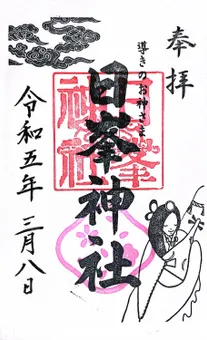 奉拝
導きのお神さま
日峯神社
日峯神社
令和五年三月八日